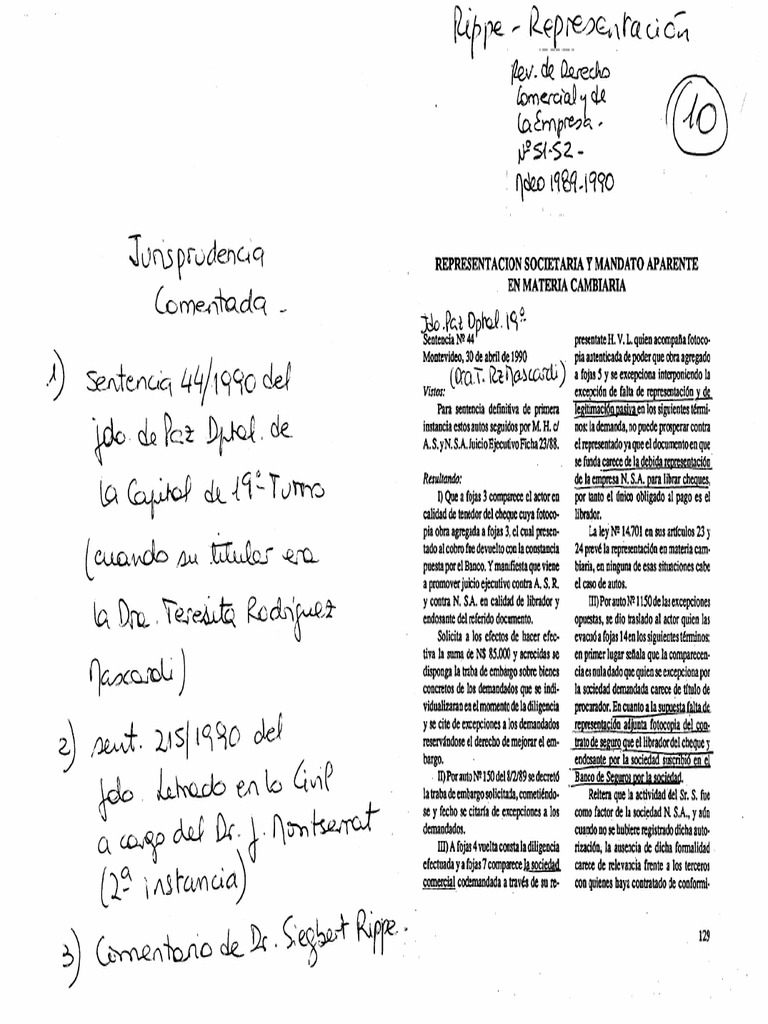 Rippe - Representación
Rev. de Derecho
Comercial y de
La Empresa -
Nº 51-52 -
Mdeo 1989-1990
10
Jurisprudencia
Comentada -
1) Sentencia 44/1990 del
jdo. de Paz Dptal. de
la Capital de 19º Turno
(cuando su titular era
la Dra. Teresita Rodríguez
Mascardi)
2) sent. 215/1990 del
jdo. Letrado en lo Civil
a cargo del Dr. J. Montserrat
(2ª instancia)
3) Comentario de Dr. Siegbert Rippe.
REPRESENTACION SOCIETARIA Y MANDATO APARENTE
EN MATERIA CAMBIARIA
Jdo. Paz Dptal. 19º
Sentencia Nº 44
Montevideo, 30 de abril de 1990
(Dra. T. Rz Mascardi)
Vistos:
Para sentencia definitiva de primera
instancia estos autos seguidos por M. H. c/
A. S. y N. S.A. Juicio Ejecutivo Ficha 23/88.
Resultando:
I) Que a fojas 3 comparece el actor en
calidad de tenedor del cheque cuya fotoco-
pia obra agregada a fojas 3, el cual presen-
tado al cobro fue devuelto con la constancia
puesta por el Banco. Y manifiesta que viene
a promover juicio ejecutivo contra A. S. R.
y contra N. SA. en calidad de librador y
endosante del referido documento.
Solicita a los efectos de hacer efec-
tiva la suma de N$ 85.000 y acrecidas se
disponga la traba de embargo sobre bienes
concretos de los demandados que se indi-
vidualizaran en el momento de la diligencia
y se cite de excepciones a los demandados
reservándose el derecho de mejorar el em-
bargo.
II) Por auto Nº 150 del 8/2/89 se decretó
la traba de embargo solicitada, cometiéndo-
se y fecho se citaría de excepciones a los
demandados.
III) A fojas 4 vuelta consta la diligencia
efectuada y a fojas 7 comparece la sociedad
comercial codemandada a través de su re-
presentate H. V. L. quien acompaña fotoco-
pia autenticada de poder que obra agregado
a fojas 5 y se excepciona interponiendo la
excepción de falta de representación y de
legitimación pasiva en los siguientes térmi-
nos: la demanda, no puede prosperar contra
el representado ya que el documento en que
se funda carece de la debida representación
de la empresa N. S.A. para librar cheques,
por tanto el único obligado al pago es el
librador.
La ley Nº 14.701 en sus artículos 23 y
24 prevé la representación en materia cam-
biaria, en ninguna de esas situaciones cabe
el caso de autos.
III) Por auto Nº 1150 de las excepciones
opuestas, se dio traslado al actor quien las
evacuó a fojas 14 en los siguientes términos:
en primer lugar señala que la comparecen-
cia es nula dado que quien se excepciona por
la sociedad demandada carece de título de
procurador. En cuanto a la supuesta falta de
representación adjunta fotocopia del con-
trato de seguro que el librador del cheque y
endosante por la sociedad suscribió en el
Banco de Seguros por la sociedad.
Reitera que la actividad del Sr. S. fue
como factor de la sociedad N. S.A., y aún
cuando no se hubiere registrado dicha auto-
rización, la ausencia de dicha formalidad
carece de relevancia frente a los terceros
con quienes haya contratado de conformi-
129